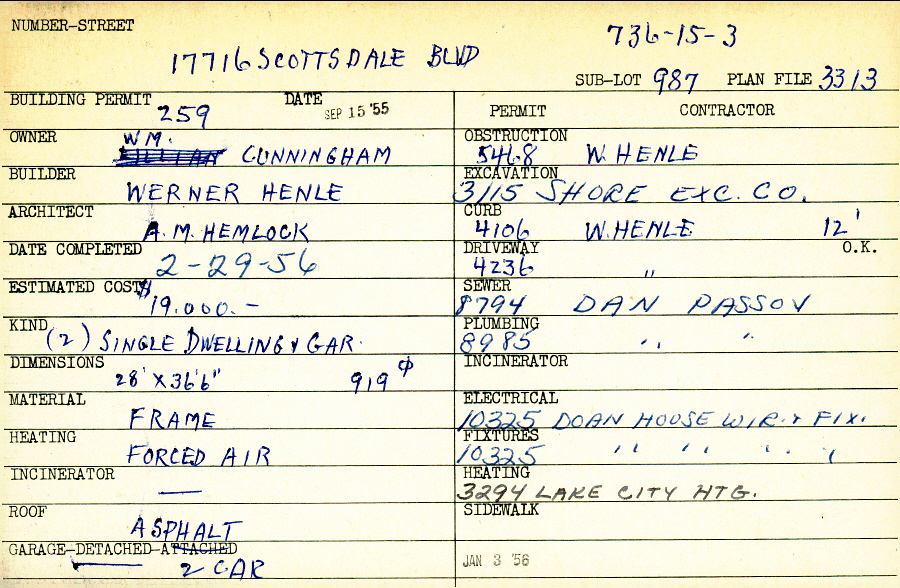 NUMBER-STREET
17716 SCOTTSDALE BLVD
736-15-3
SUB-LOT 987 PLAN FILE 3313
BUILDING PERMIT 259 DATE SEP 15 '55
OWNER WM. CUNNINGHAM
BUILDER WERNER HENLE
ARCHITECT A.M. HEMLOCK
DATE COMPLETED 2-29-56
ESTIMATED COST $19.000.-
KIND (2) SINGLE DWELLING & GAR.
DIMENSIONS 28' X 36'6" 919
MATERIAL FRAME
HEATING FORCED AIR
INCINERATOR —
ROOF ASPHALT
GARAGE-DETACHED-ATTACHED
2 CAR
PERMIT CONTRACTOR
OBSTRUCTION
5468 W. HENLE
EXCAVATION
3115 SHORE EXC. CO.
CURB
4106 W. HENLE 12'
DRIVEWAY O.K.
4236 "
SEWER
8794 DAN PASSOV
PLUMBING
8985 " "
INCINERATOR
ELECTRICAL
10325 DOAN HOUSE WIR. & FIX.
FIXTURES
10325 " " " "
HEATING
3294 LAKE CITY HTG.
SIDEWALK
JAN 3 '56